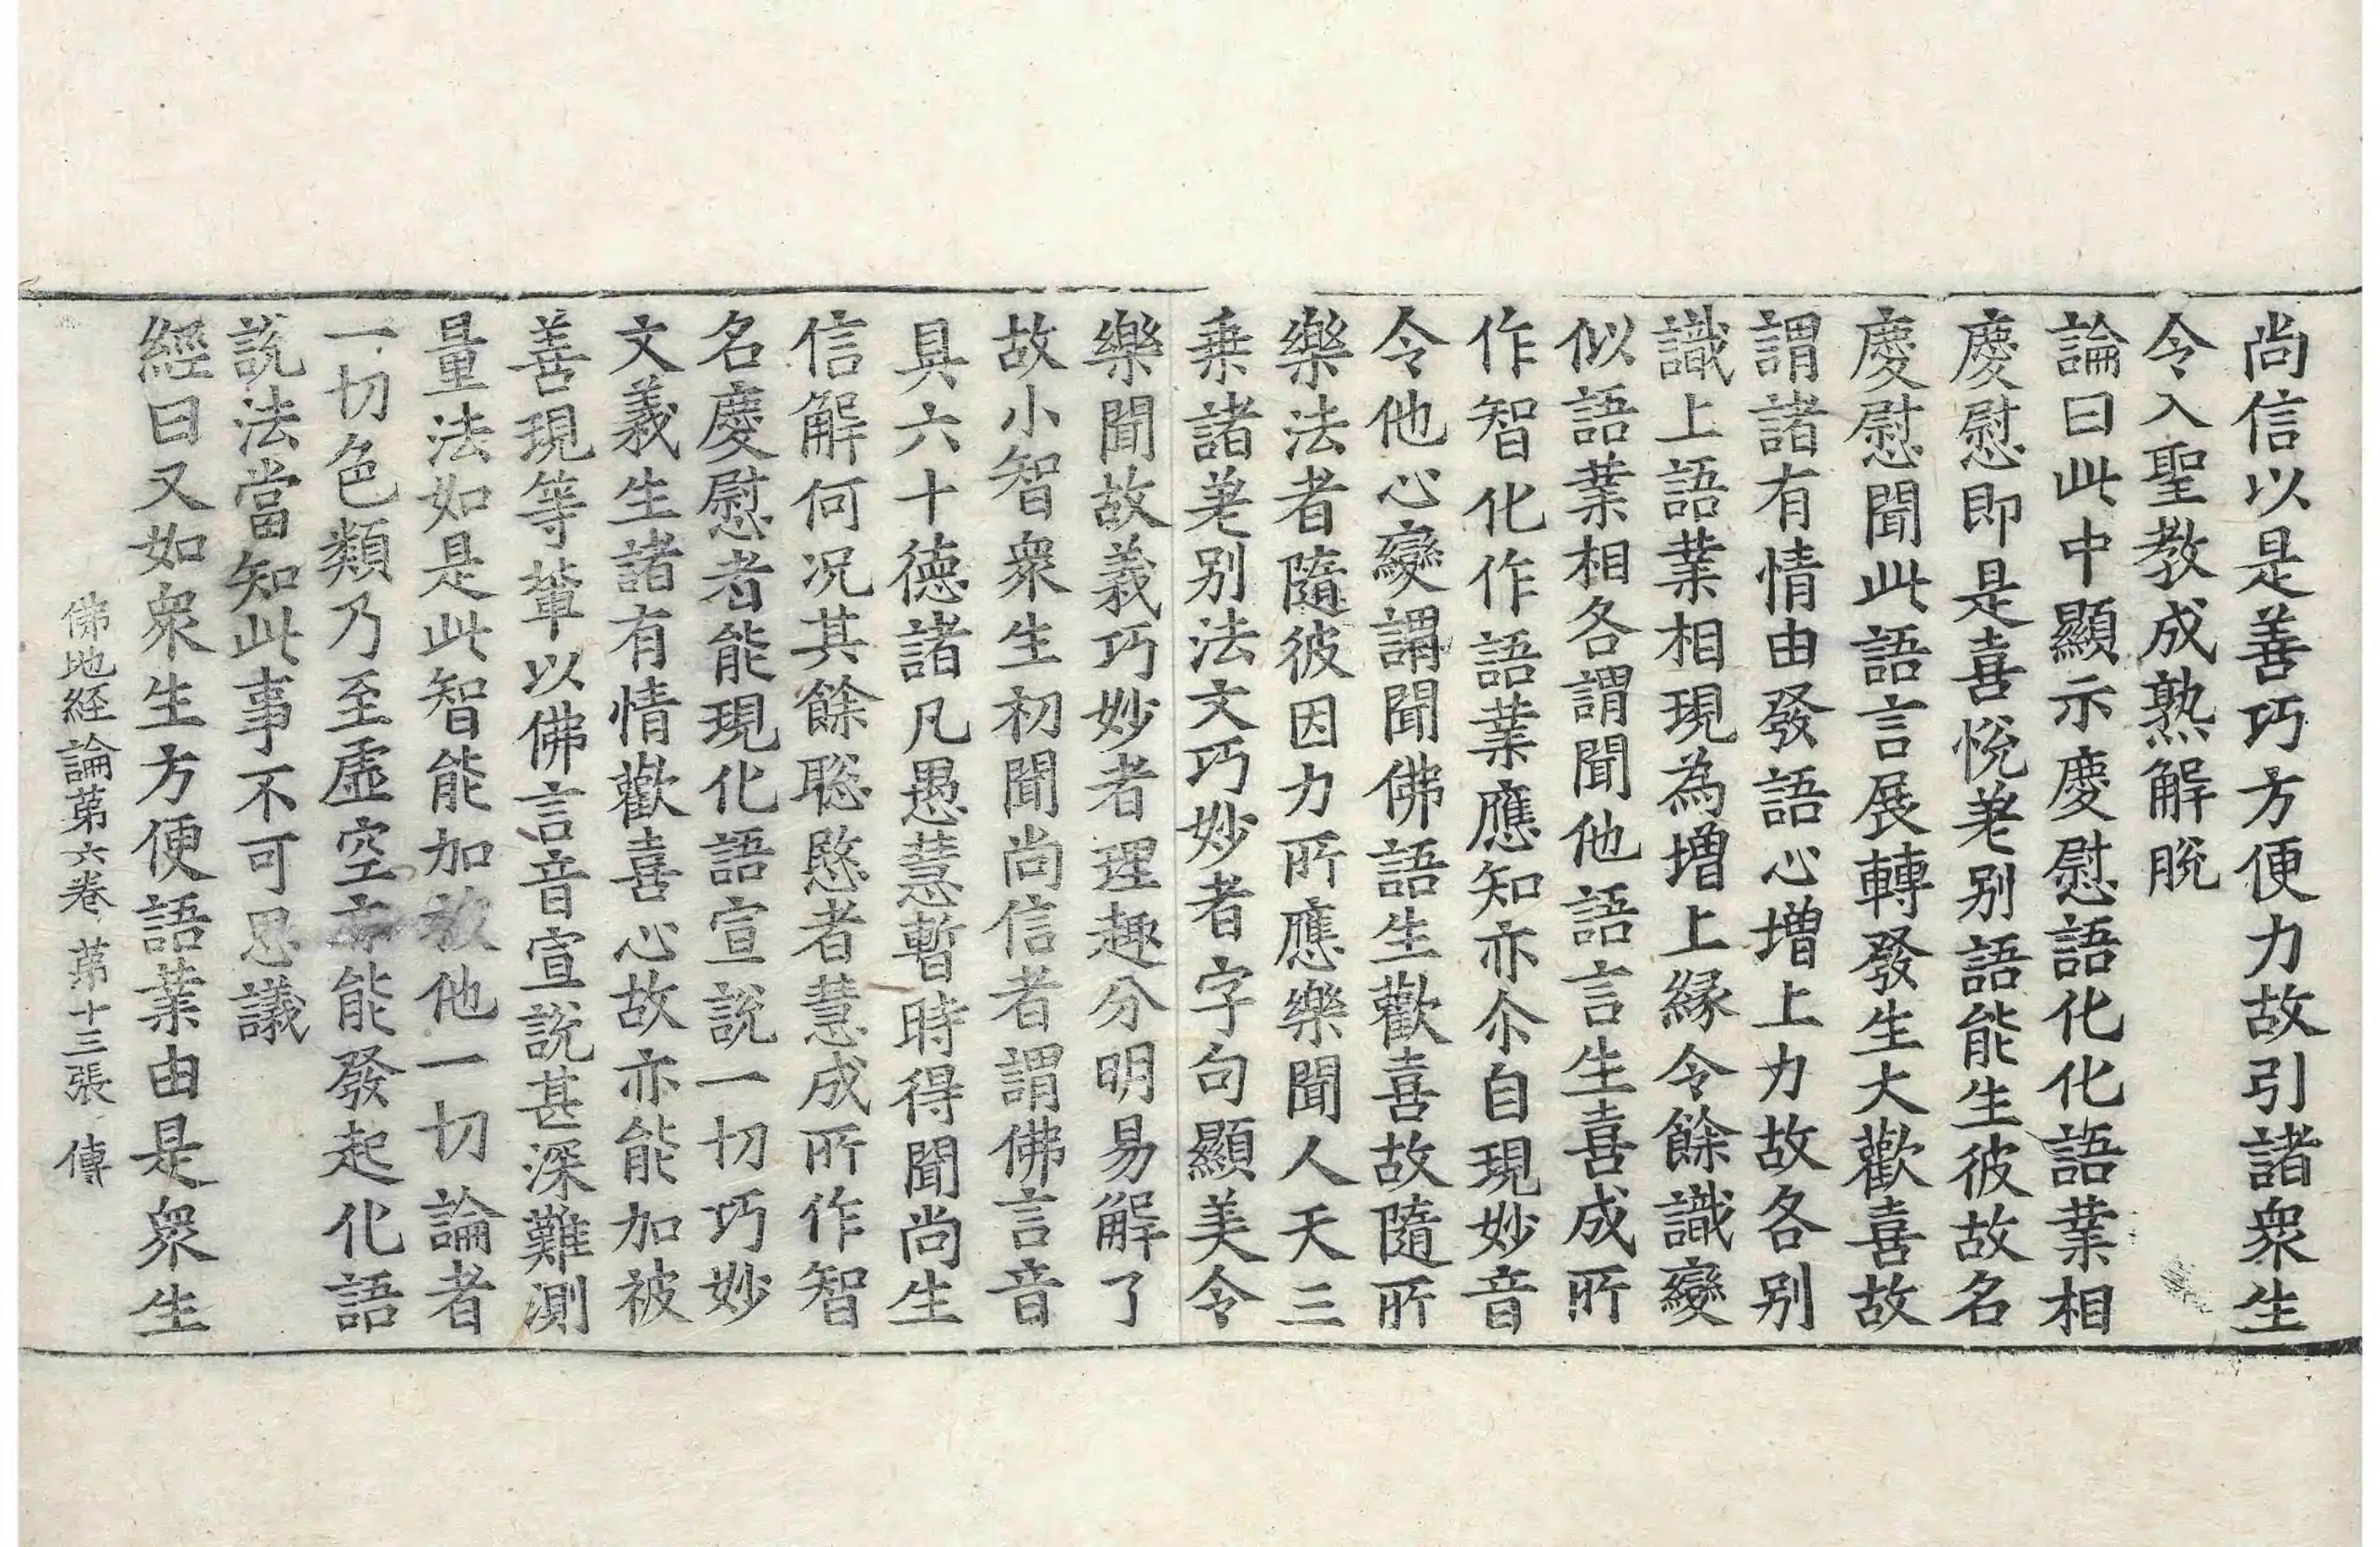 尚信以是善巧方便力故引諸衆生
令入聖教成熟解脫
論曰此中顯示慶慰語化化語業相
慶慰即是喜悅差别語能生彼故名
慶慰聞此語言展轉發生大歡喜故
謂諸有情由發語心增上力故各别
識上語業相現為增上緣令餘識變
似語業相各謂聞他語言生喜成所
作智化作語業應知亦尒自現妙音
令他心變謂聞佛語生歡喜故隨所
樂法者隨彼因力所應樂聞人天三
乗諸差别法文巧妙者字句顯美令
樂聞故義巧妙者理趣分明易解了
故小智衆生初聞尚信者謂佛言音
具六十德諸凡愚慧暫時得聞尚生
信解何况其餘聡慜者慧成所作智
名慶慰者能現化語宣說一切巧妙
文義生諸有情歡喜心故亦能加被
善現等輩以佛言音宣說甚深難測
量法如是此智能加被他一切論者
一切色類乃至虛空亦能發起化語
說法當知此事不可思議
經曰又如衆生方便語業由是衆生
佛地経論苐六卷 苐十三張 傳